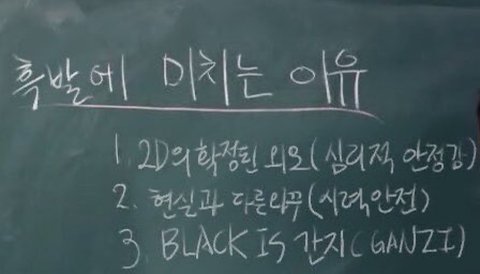 흑발에 미치는 이유
1. 2D의 확정된 외모(심리적 안정감)
2. 현실과 다른외꾸(시력안전)
3. BLACK IS 간지(GANZI)